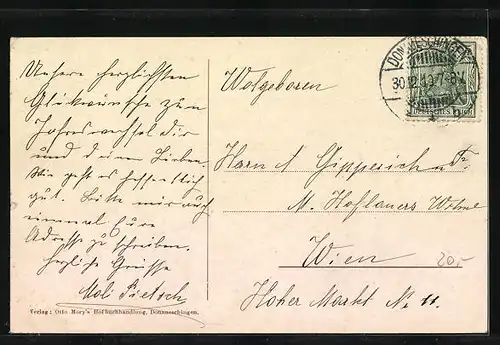 Unsere herzlichsten
Glükwünsche zum
Jahreswechsel dir
und deinen Lieben.
Wie geht es hoffentlich
gut. Bitte mir auch
einmal Eure
Adresse zu schreiben.
Herzliche Grüsse
Pietsch
Verlag: Otto Mory's Hofbuchhandlung, Donaueschingen.
DONAUESCHINGEN
30.12. 7-8
DEUTSCHES REICH
Wolgeboren
Herrn Gipperich
M. Hoflauers Witwe
Wien
Hoher Markt No 11.
20,-